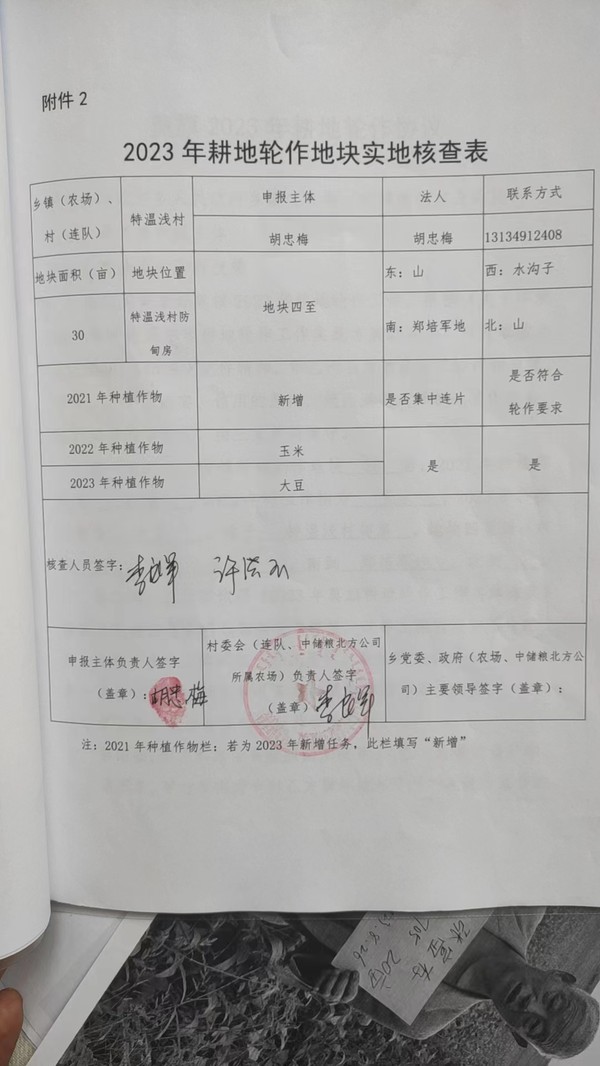 附件 2
2023 年耕地轮作地块实地核查表
乡镇（农场）、
村（连队）
特温浅村
申报主体
法人
联系方式
胡忠梅
胡忠梅
13134912408
地块面积（亩）
地块位置
地块四至
东：山
西：水沟子
30
特温浅村防
甸房
南：郑培军地
北：山
2021 年种植作物
新增
是否集中连片
是否符合
轮作要求
2022 年种植作物
玉米
是
是
2023 年种植作物
大豆
核查人员签字：
申报主体负责人签字
（盖章）：胡忠梅
村委会（连队、中储粮北方公司
所属农场）负责人签字
（盖章）
乡党委、政府（农场、中储粮北方公
司）主要领导签字（盖章）：
注：2021 年种植作物栏：若为 2023 年新增任务，此栏填写“新增”